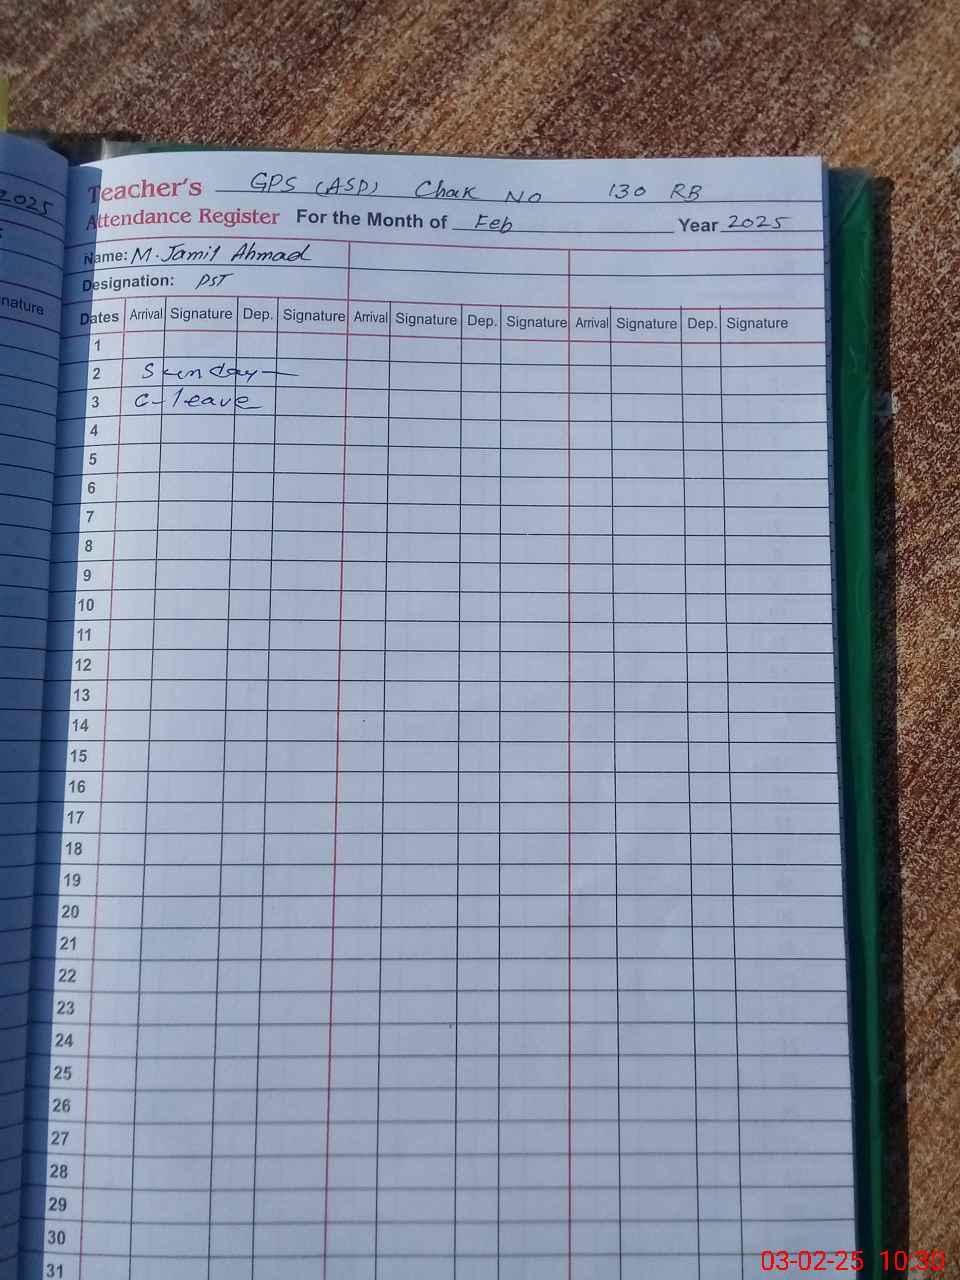 2025
nature
Teacher's GPS (ASP) Chak No 130 RB
Attendance Register For the Month of Feb Year 2025
Name: M. Jamil Ahmad
Designation: PST
Dates Arrival Signature Dep. Signature Arrival Signature Dep. Signature Arrival Signature Dep. Signature
1
2 Sunday
3 C-leave
4
5
6
7
8
9
10
11
12
13
14
15
16
17
18
19
20
21
22
23
24
25
26
27
28
29
30
31
03-02-25 10:30